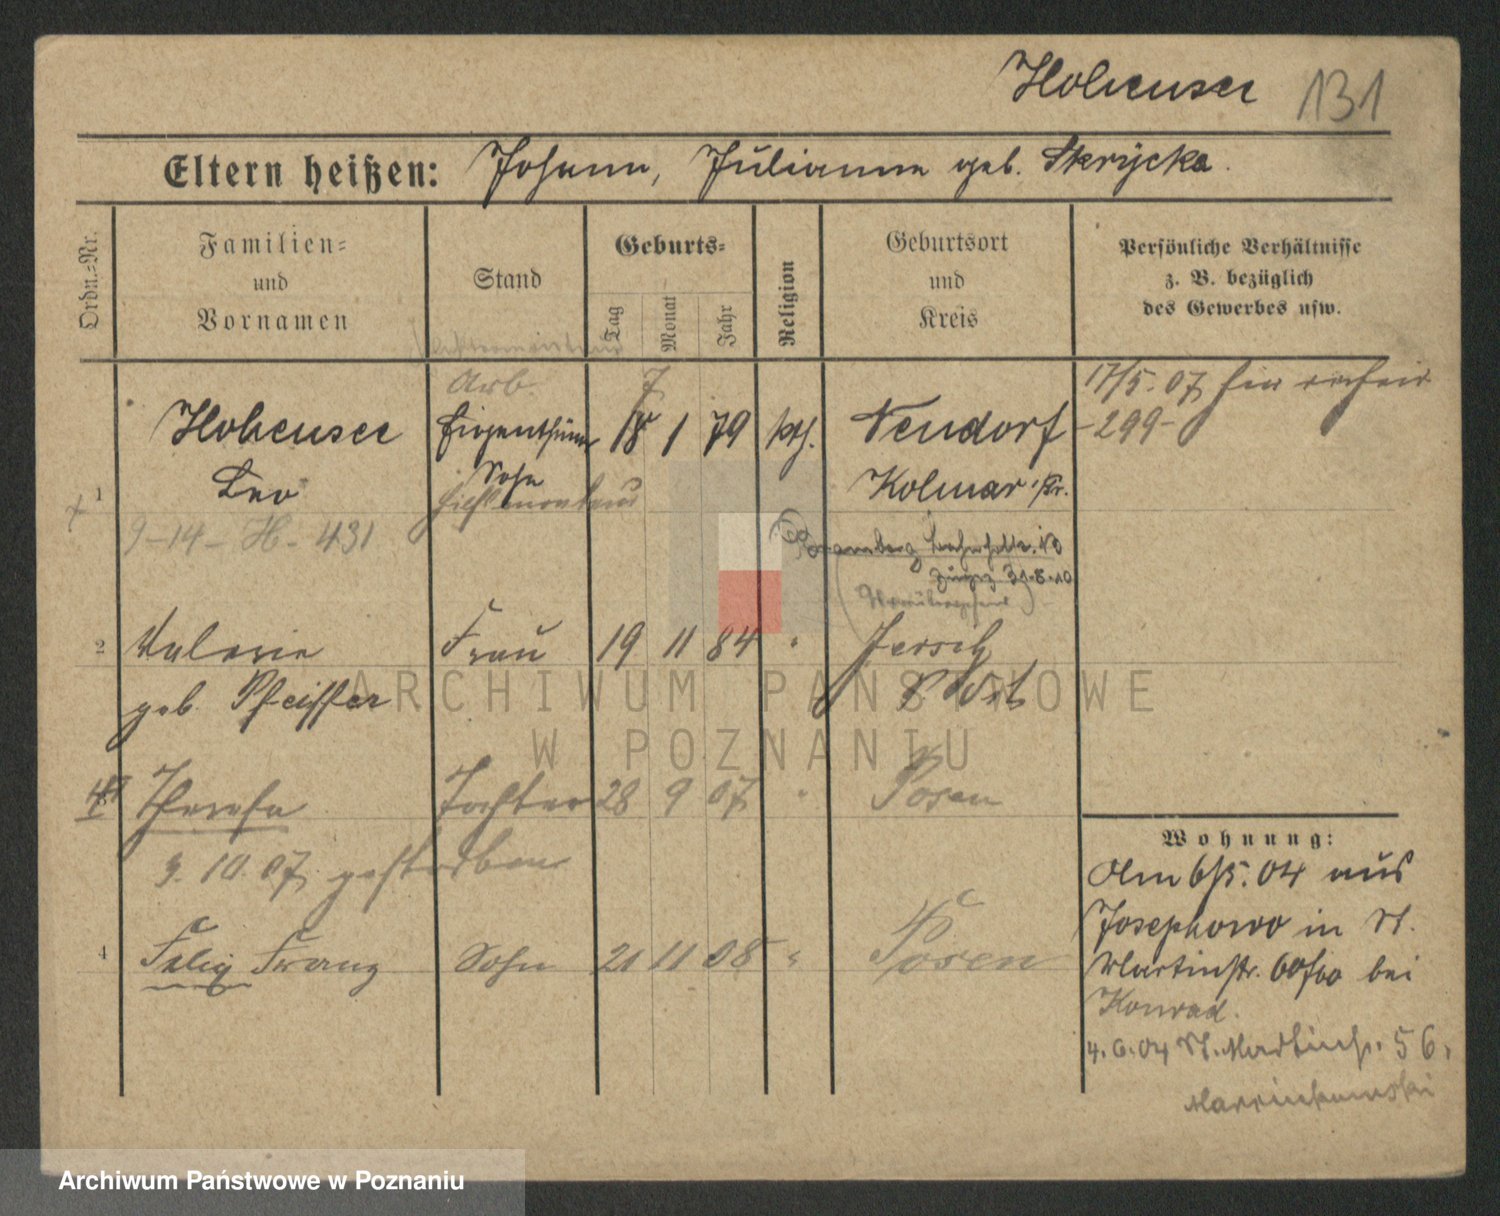 Hohensee 131
Eltern heißen: Johann, Julianna geb. Skrycka.
Ordn.=Nr.
Familien=
und
Vornamen
Stand
Geburts=
Tag Monat Jahr
Religion
Geburtsort
und
Kreis
Persönliche Verhältnisse
z. B. bezüglich
des Gewerbes usw.
Arb. 7
17/5. 07
-299-
1 Hohensee Eigenthümer 18 1 79 kth. Neudorf
Leo Sohn Kolmar i/Pr.
9-14- H- 431
31.8.10
2 Valerie Frau 19 11 84 " Jersitz
geb. Pfeiffer P. West
Theresia Tochter 28 9 07 " Posen
3. 10. 07 gestorben
4 Felix Franz Sohn 21 11 08 " Posen
Wohnung:
Am 6/5. 04 aus
Josephowo in St.
Martinstr. 60/60 bei
Konrad.
4.6.04 St. Martinstr. 56,
ARCHIWUM PAŃSTWOWE
W POZNANIU
Archiwum Państwowe w Poznaniu